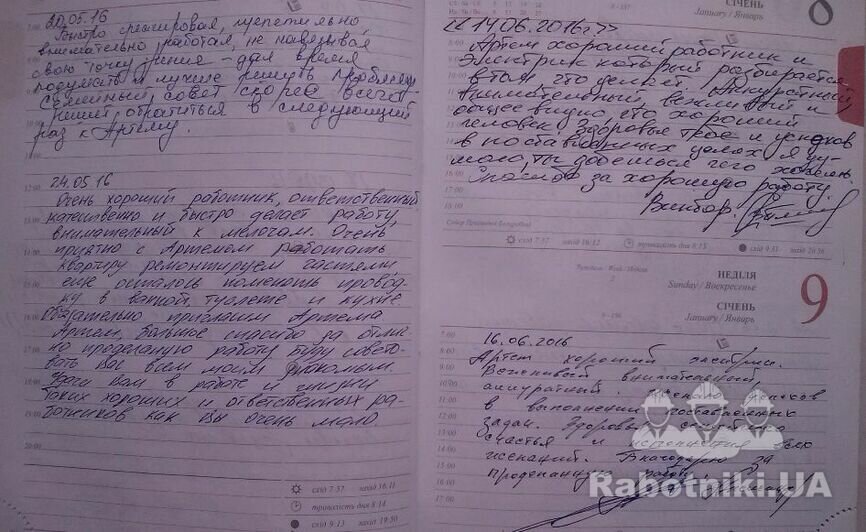 20.05.16
Быстро среагировал, щепетильно
внимательно работал, не навязывая
свою точку зрения - дал время
подумать и лучше решить проблему.
Семейный совет скорее всего
решит обратиться в следующий
раз к Артему.
24.05.16
Очень хороший работник, ответственный
качественно и быстро делает работу,
внимательный к мелочам. Очень
приятно с Артемом работать
квартиру ремонтируем частями
еще осталось поменять провод-
ку в ванной, туалете и кухне
Обязательно пригласим Артема
Артем, большое спасибо за отлич-
но проделаную работу Буду совето-
вать Вас всем моим знакомым.
Удачи Вам в работе и жизни
Таких хороших и ответственных ра-
ботников как Вы очень мало
схід 7:57 захід 16:11
тривалість дня 8:14
схід 9:13 захід 19:50
СІЧЕНЬ
January / Январь
8
<<14.06.2016г>>
Артем хороший работник и
электрик который разбирается
в том что делает. Аккуратный,
внимательный, вежливый и
общее видно, что хороший
человек. Здоровья тебе и успехов
в поставленных целях Я ду-
маю, ты добьешься чего хочешь.
Спасибо за хорошую работу.
Виктор.
схід 7:57 захід 16:12
тривалість дня 8:15
схід 9:31 захід 20:56
НЕДІЛЯ
Sunday / Воскресенье
СІЧЕНЬ
January / Январь
9
16.06.2016
Артем хороший электрик.
Вежливый внимательный
аккуратный. успехов
в выполнении поставленных
задач. Здоровья
счастья и исполнения всех
Благодарю за
проделанную работу
Rabotniki.UA